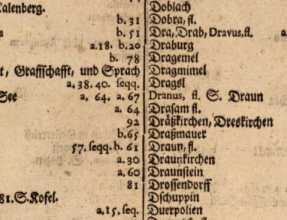 Calenberg.
b. 31
b. 51
a.18. b.20
b. 78
t, Graffschafft, und Sprach
a. 38. 40. seqq.
See a. 64. a. 67
a. 64
92
b.65
57. seqq. b. 61
a.30
a. 60
81
81. S. Kofel.
a.15. seq.
Doblach
Dobra, fl.
Dra, Drab, Dravus, fl.
Draburg
Dragemel
Dragmimel
Dragsl
Dranus, fl. S. Draun
Drasam fl.
Dräskirchen, Dreskirchen
Draßmauer
Draun, fl.
Draunkirchen
Draunstein
Drossendorff
Dschuppin
Duerpolien